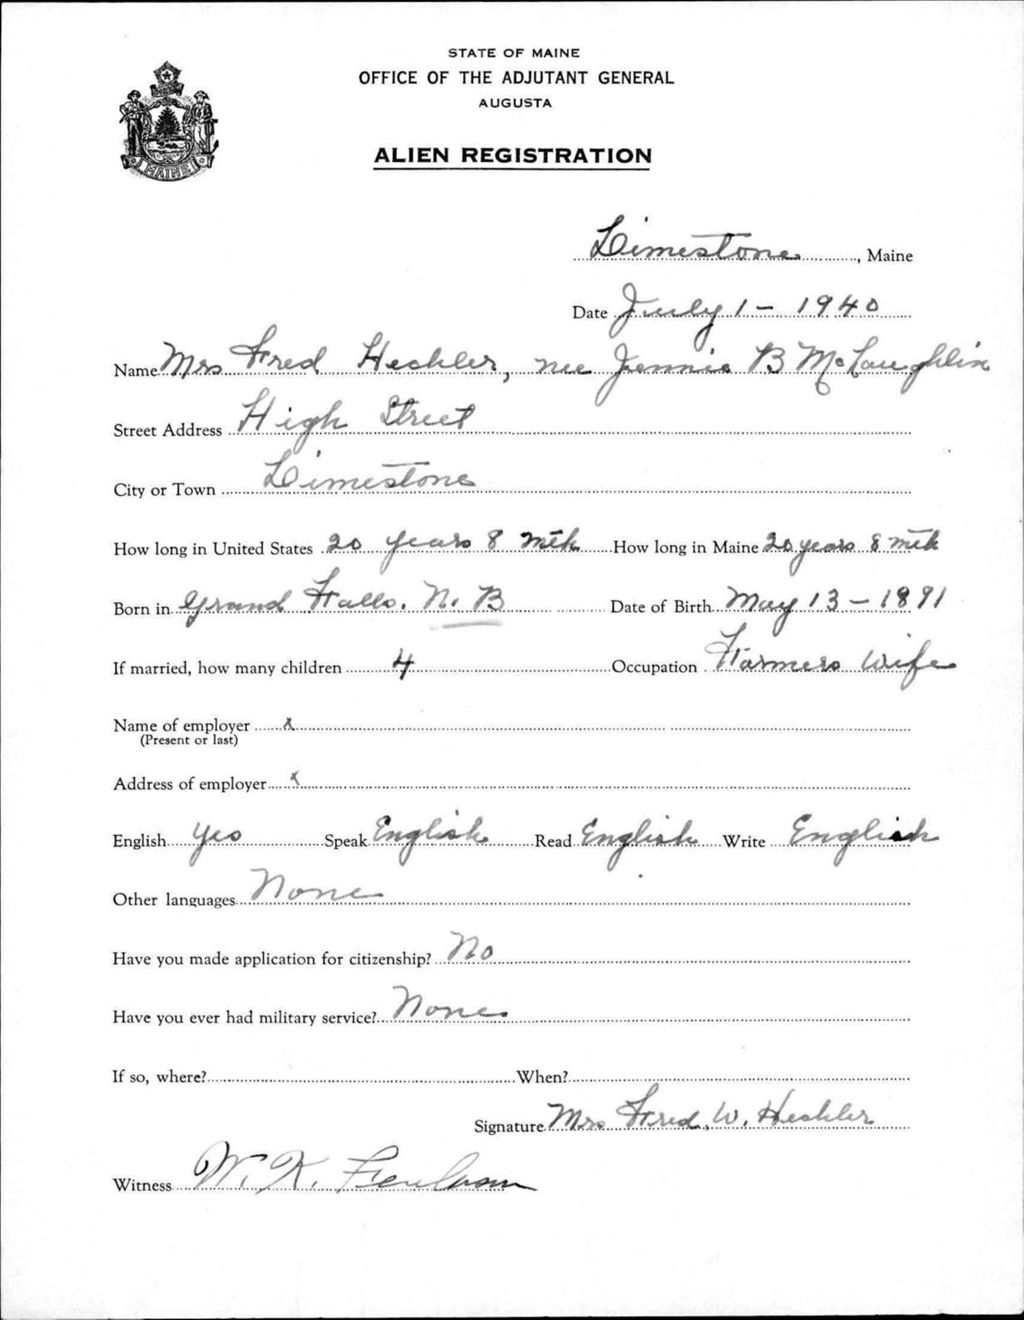 STATE OF MAINE
OFFICE OF THE ADJUTANT GENERAL
AUGUSTA
ALIEN REGISTRATION
MAINE
Limestone, Maine
Date July 1 - 1940
Name Mrs Fred Hechler, nee Jennie B McLaughlin
Street Address High Street
City or Town Limestone
How long in United States 20 years 8 mth How long in Maine 20 years 8 mth
Born in Grand Falls, N. B Date of Birth May 13 - 1891
If married, how many children 4 Occupation Farmers Wife
Name of employer x
(Present or last)
Address of employer x
English Yes Speak English Read English Write English
Other languages None
Have you made application for citizenship? No
Have you ever had military service? None
If so, where? When?
Signature Mrs Fred. W. Hechler
Witness W. K.